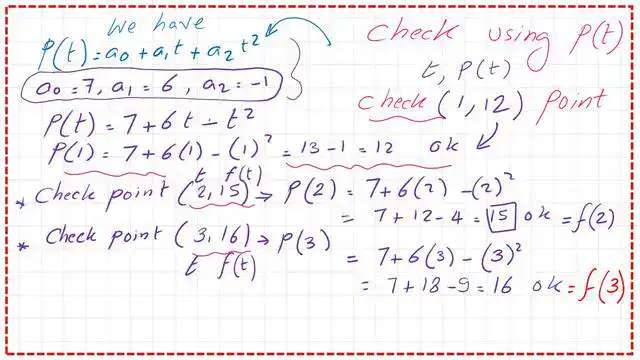 We have
P(t) = a0 + a1t + a2t²
a0 = 7, a1 = 6, a2 = -1
P(t) = 7 + 6t - t²
P(1) = 7 + 6(1) - (1)² = 13 - 1 = 12 ok
check using P(t)
t, P(t)
check (1,12) point
t f(t)
* Check point (2,15) → P(2) = 7+6(2) - (2)²
= 7+12-4 = 15 ok = f(2)
* Check point (3,16) → P(3)
t f(t)
= 7+6(3) - (3)²
= 7+18-9 = 16 ok = f(3)